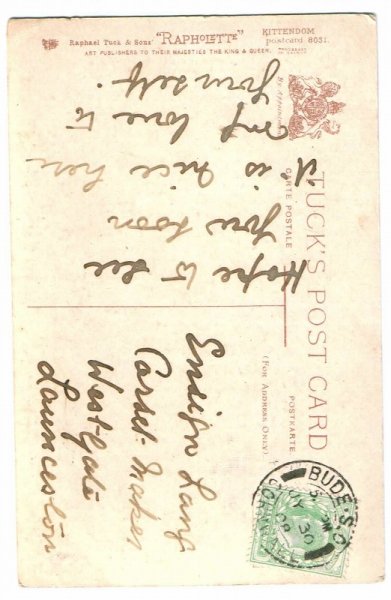 Raphael Tuck & Sons' "RAPHOLETTE" KITTENDOM
postcard 8031.
ART PUBLISHERS TO THEIR MAJESTIES THE KING & QUEEN.
TUCK'S POST CARD
CARTE POSTALE
POSTKARTE
(FOR ADDRESS ONLY)
Hope to see
you soon
it is nice here
my love to
yourself.
Ensign Lang
Westgate
Launceston
BUDE S.O.
CORNWALL
JY 30
08